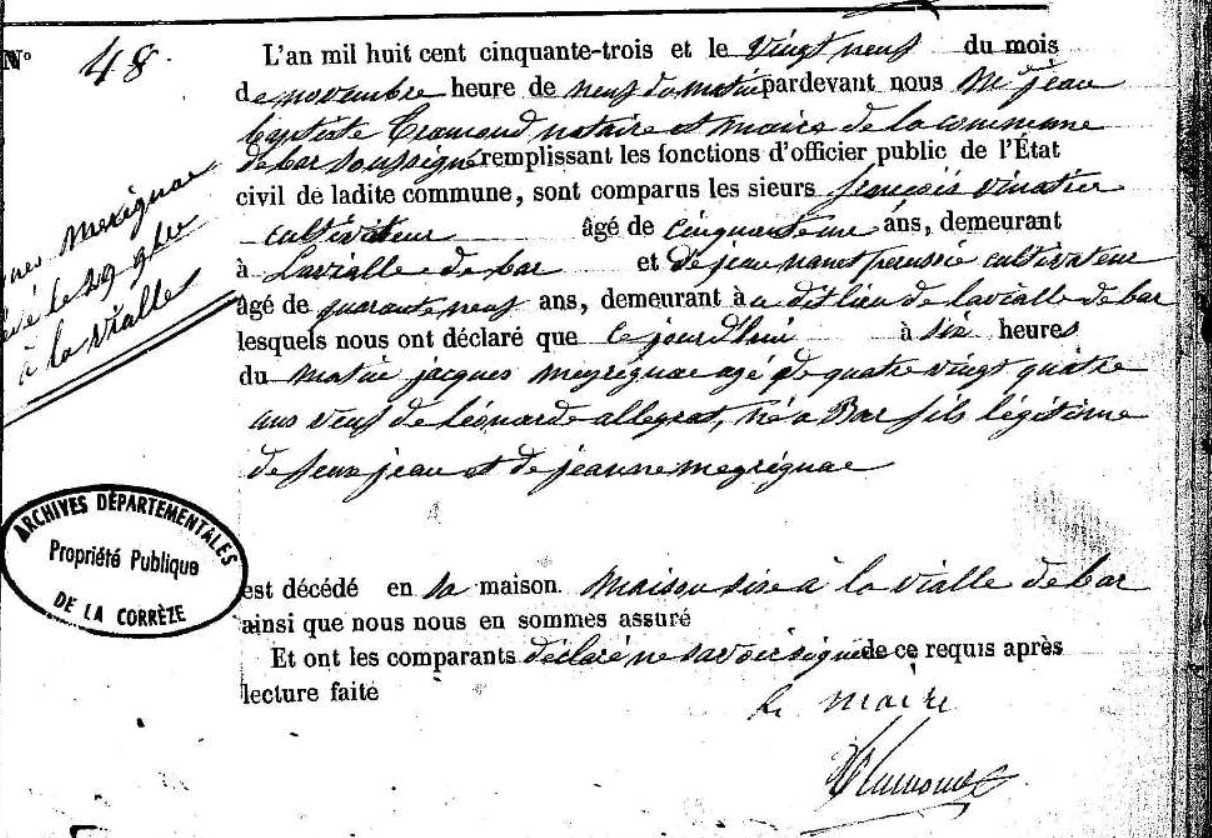 N° 48.
L'an mil huit cent cinquante-trois et le vingt neuf du mois
de novembre heure de neuf du matin pardevant nous Me jean
baptiste notaire et maire de la commune
de bar soussigné remplissant les fonctions d'officier public de l'État
civil de ladite commune, sont comparus les sieurs françois vinatier
cultivateur âgé de cinquante un ans, demeurant
à Lavialle de bar et de jean cultivateur
âgé de quarante neuf ans, demeurant à a dit lieu de lavialle de bar
lesquels nous ont déclaré que ce jourd'hui à six heures
du matin jacques meyrignac agé de quatre vingt quatre
ans veuf de léonarde allegrat, né a Bar fils légitime
de feux jean et de jeanne megrignac
est décédé en sa maison maison sise à la vialle de bar
ainsi que nous nous en sommes assuré
Et ont les comparants déclaré ne savoir signer de ce requis après
lecture faite
le maire
Mexignac
le 29 9bre
à la vialle
ARCHIVES DÉPARTEMENTALES
Propriété Publique
DE LA CORRÈZE